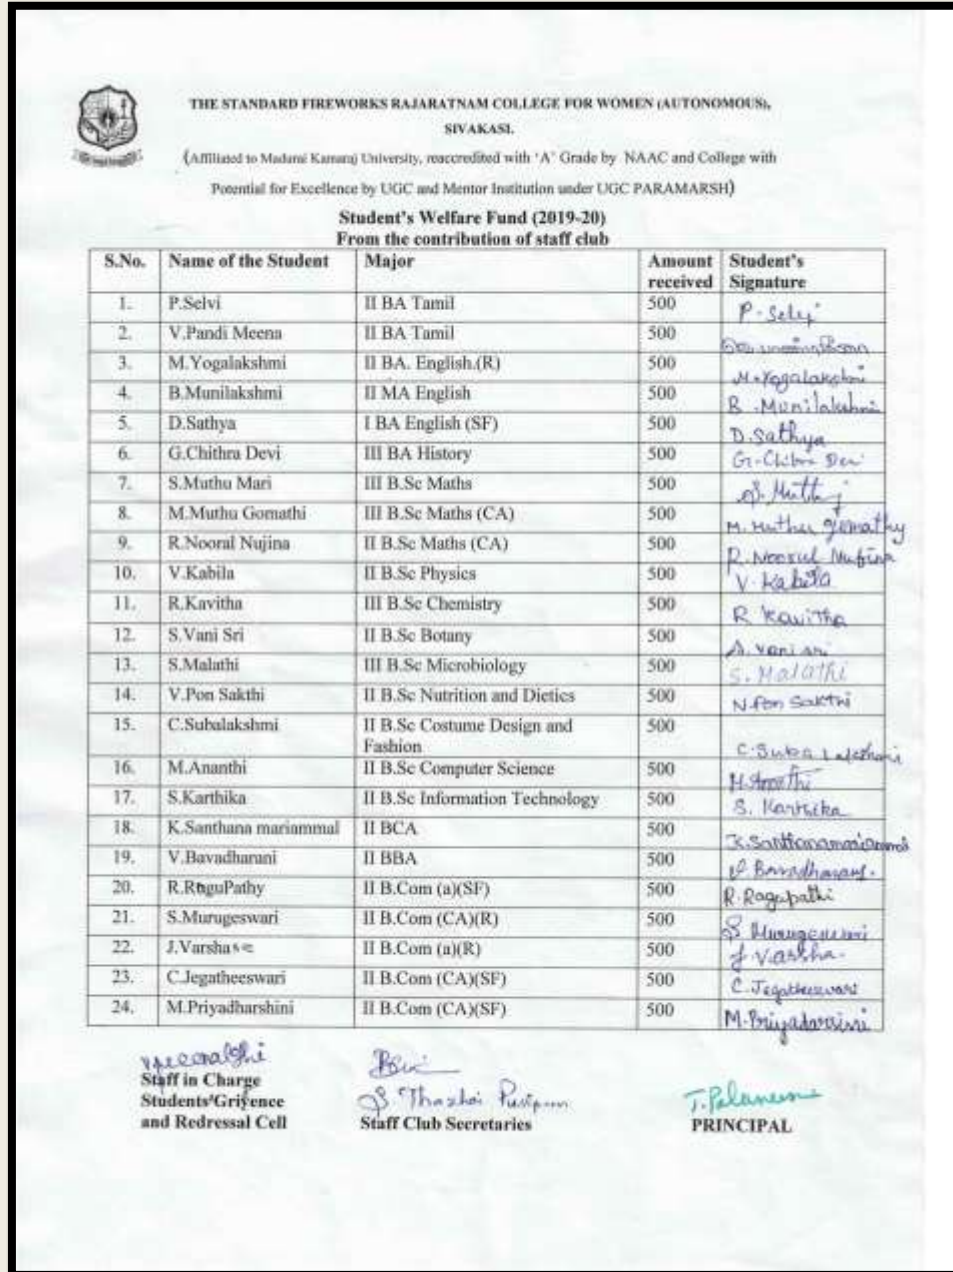 THE STANDARD FIREWORKS RAJARATNAM COLLEGE FOR WOMEN (AUTONOMOUS),
SIVAKASI.
(Affiliated to Madurai Kamaraj University, reaccredited with 'A' Grade by NAAC and College with
Potential for Excellence by UGC and Mentor Institution under UGC PARAMARSH)
Student's Welfare Fund (2019-20)
From the contribution of staff club
S.No. Name of the Student Major Amount received Student's Signature
1. P.Selvi II BA Tamil 500 P. Selvi
2. V.Pandi Meena II BA Tamil 500
3. M.Yogalakshmi II BA. English.(R) 500 M.Yogalakshmi
4. B.Munilakshmi II MA English 500 B.Munilakshmi
5. D.Sathya I BA English (SF) 500 D.Sathya
6. G.Chithra Devi III BA History 500 G.Chitra Devi
7. S.Muthu Mari III B.Sc Maths 500 S.
8. M.Muthu Gomathi III B.Sc Maths (CA) 500 M. Muthu Gomathy
9. R.Nooral Nujina II B.Sc Maths (CA) 500 R. Noorul Nufina
10. V.Kabila II B.Sc Physics 500 V. Kabila
11. R.Kavitha III B.Sc Chemistry 500 R Kavitha
12. S.Vani Sri II B.Sc Botany 500 S. Vani sri
13. S.Malathi III B.Sc Microbiology 500 S. Malathi
14. V.Pon Sakthi II B.Sc Nutrition and Dietics 500 V.Pon Sakthi
15. C.Subalakshmi II B.Sc Costume Design and Fashion 500 C.Suba Lakshmi
16. M.Ananthi II B.Sc Computer Science 500 M.Ananthi
17. S.Karthika II B.Sc Information Technology 500 S. Karthika
18. K.Santhana mariammal II BCA 500 K.Santhanamariammal
19. V.Bavadharani II BBA 500 V. Bavadharani.
20. R.RaguPathy II B.Com (a)(SF) 500 R.Ragupathi
21. S.Murugeswari II B.Com (CA)(R) 500 S Murugeswari
22. J.Varsha II B.Com (a)(R) 500 J.Varsha.
23. C.Jegatheeswari II B.Com (CA)(SF) 500 C.Jegatheeswari
24. M.Priyadharshini II B.Com (CA)(SF) 500 M.Priyadarsini
Staff in Charge
Students'Griyence
and Redressal Cell
S Thashai
Staff Club Secretaries
PRINCIPAL